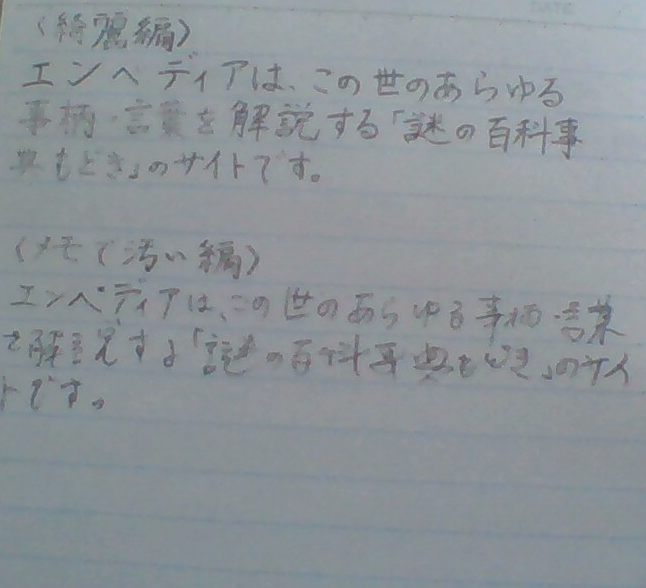 DATE
〈綺麗編〉
エンペディアは、この世のあらゆる
事柄・言葉を解説する「謎の百科事
典もどき」のサイトです。
〈メモで汚い編〉
エンペディアは、この世のあらゆる事柄・言葉
を解説する「謎の百科事典もどき」のサイ
トです。